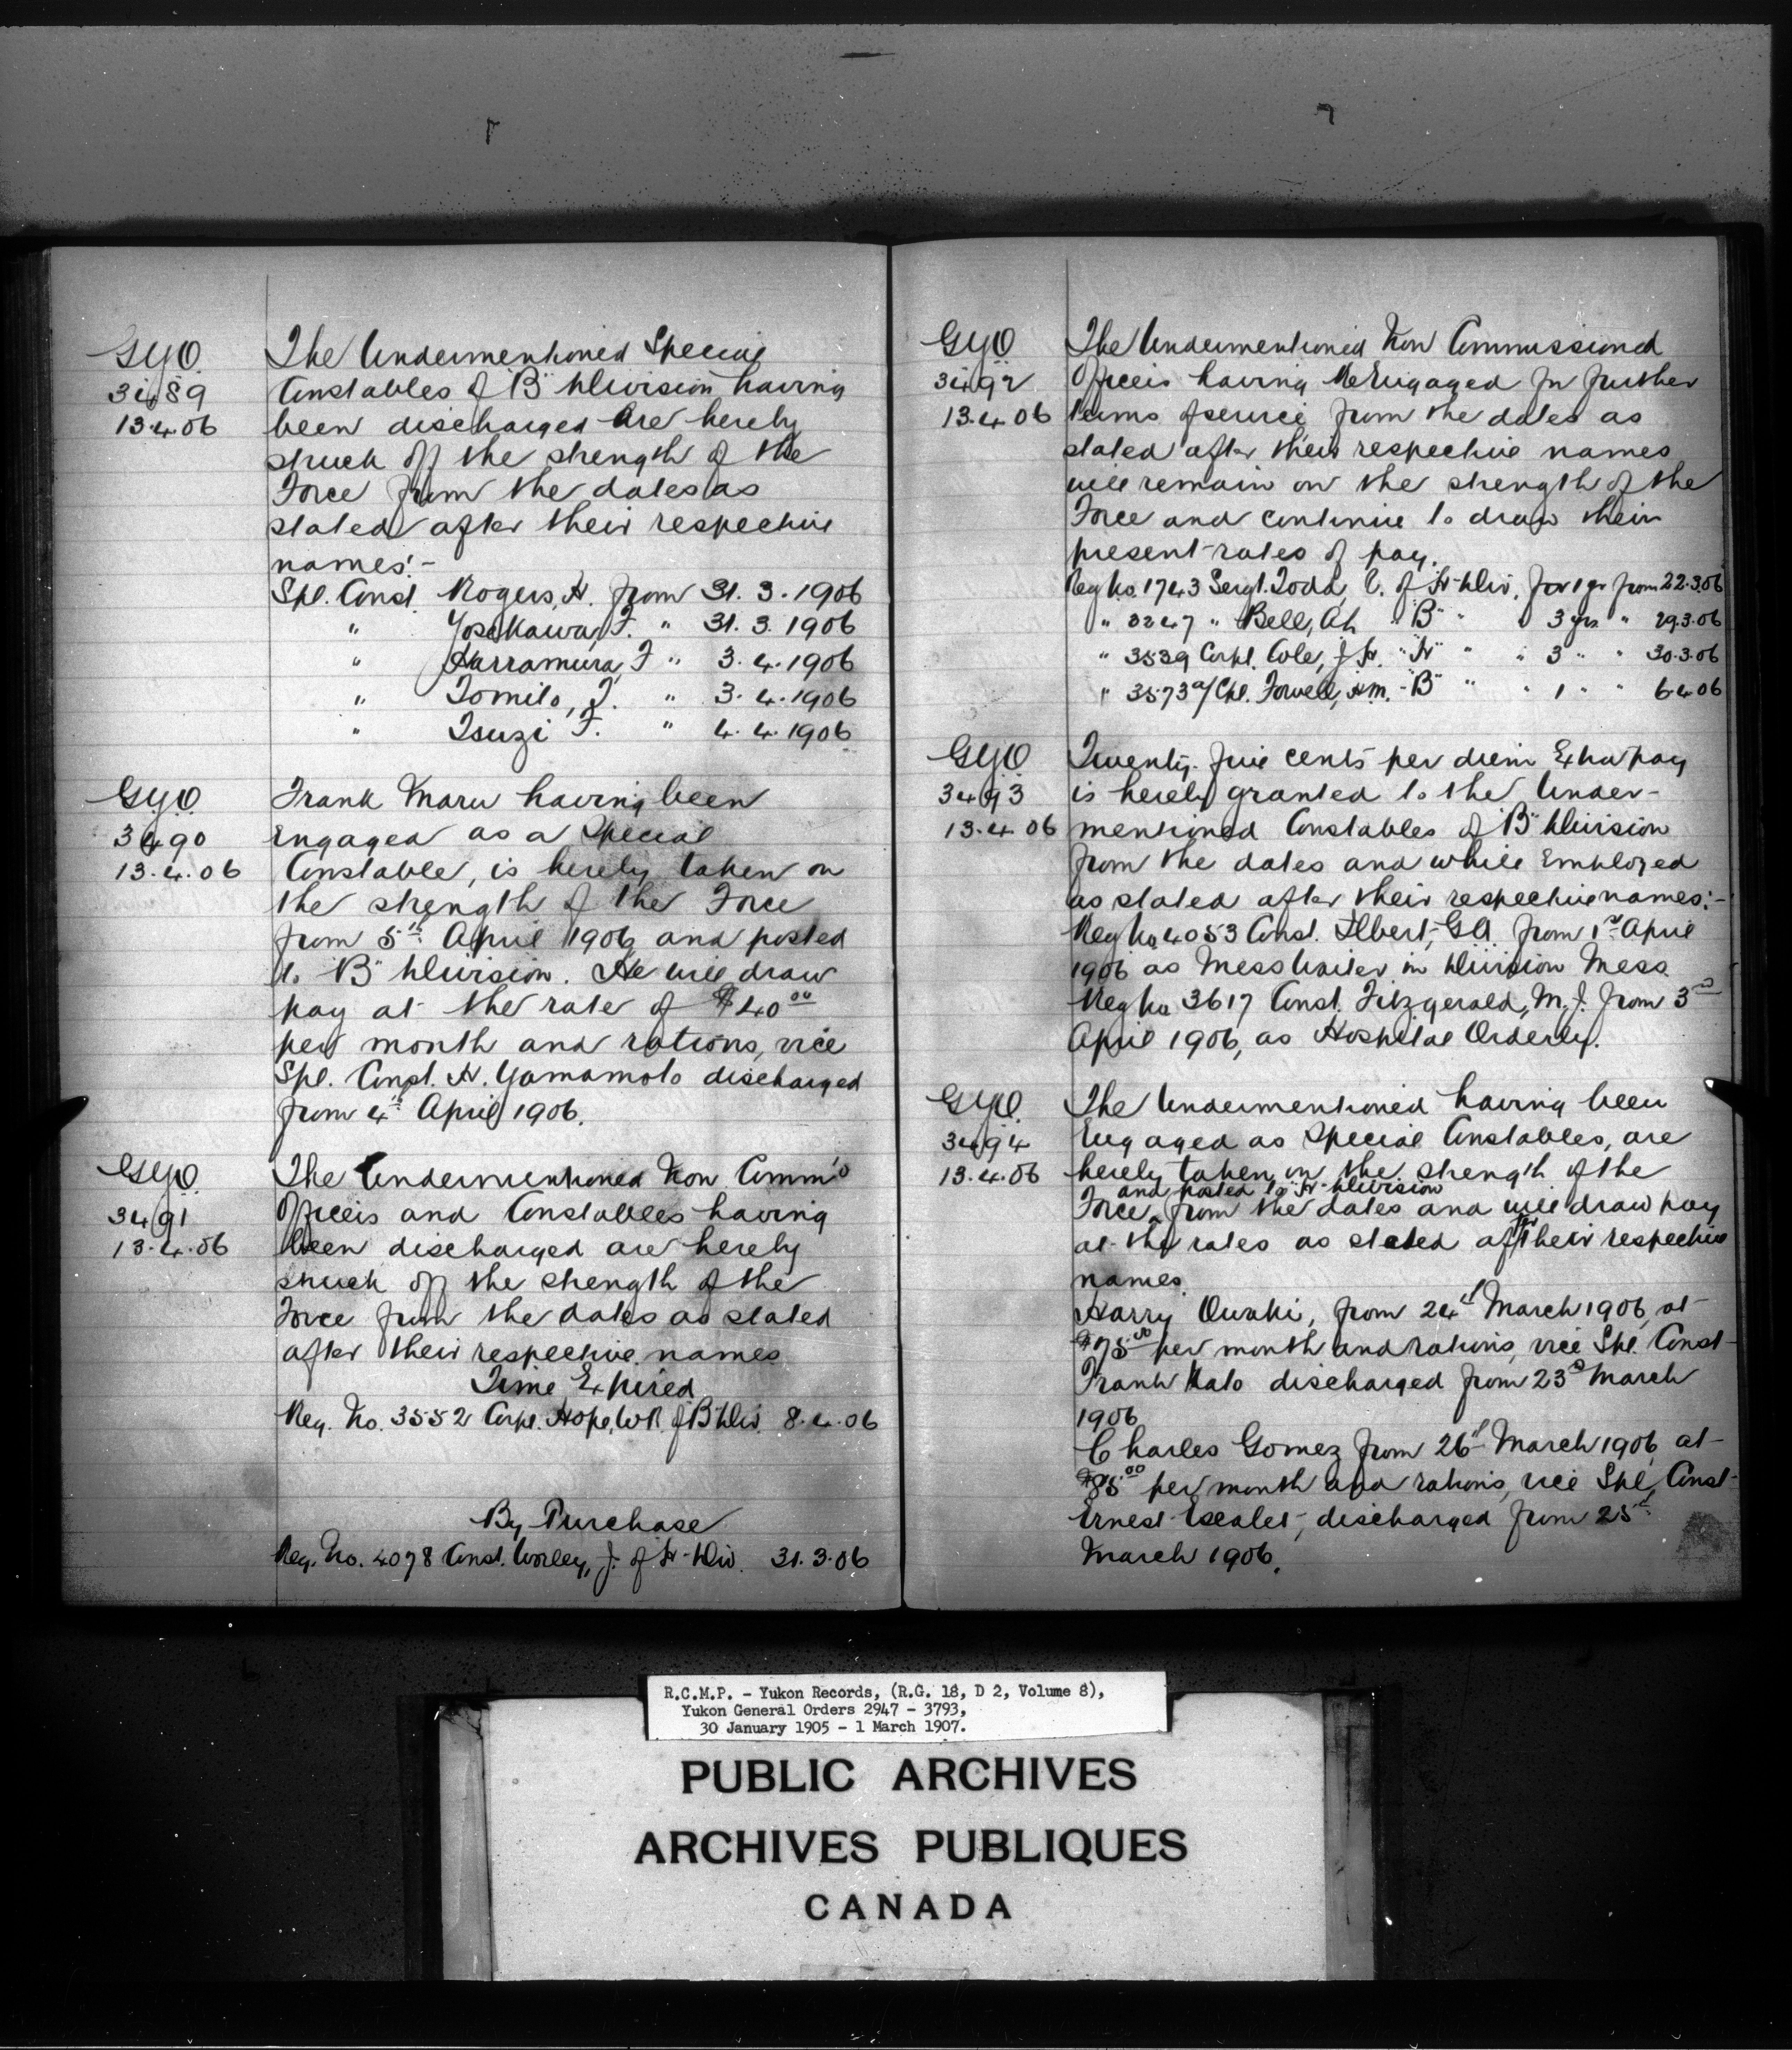 G.Y.O.
3489
13.4.06
The Undermentioned Special
Constables of "B" Division having
been discharged are hereby
struck off the strength of the
Force from the dates as
stated after their respective
names:-
Spl. Const. Rogers, H. from 31.3.1906
" Yosekawa, F. " 31.3.1906
" Harramura, F " 3.4.1906
" Tomito, T. " 3.4.1906
" Tsuzi F. " 4.4.1906
G.Y.O.
3490
13.4.06
Frank Maru having been
Engaged as a Special
Constable, is hereby taken on
the strength of the Force
from 5th April 1906 and posted
to "B" Division. He will draw
pay at the rate of $40.00
per month and rations, vice
Spl. Const. H. Yamamoto discharged
from 4th April 1906.
G.Y.O.
3491
13.4.06
The Undermentioned Non Comm'd
Officers and Constables having
been discharged are hereby
struck off the strength of the
Force from the dates as stated
after their respective names
Time Expired
Reg. No. 3552 Corpl. Hope, W.R. of "B" Div. 8.4.06
By Purchase
Reg. No. 4078 Const. Worley, J. of "H" Div. 31.3.06
G.Y.O.
3492
13.4.06
The Undermentioned Non Commissioned
Officers having ReEngaged for further
terms of service from the dates as
stated after their respective names
will remain on the strength of the
Force and continue to draw their
present rates of pay.
Reg No. 1743 Sergt. Todd, C. of "H" Div. for 1 yr from 22.3.06
" 3247 " Bell, A.h "B" " " 3 yrs " 29.3.06
" 3539 Corpl. Cole, J H. "H" " " 3 " " 30.3.06
" 3573 a/Cpl. Fowell, H.M. "B" " " 1 " " 6.4.06
G.Y.O.
3493
13.4.06
Twenty-five cents per diem Extra pay
is hereby granted to the Under-
mentioned Constables of "B" Division
from the dates and while Employed
as stated after their respective names:-
Reg No 4053 Const. Ilbert, G.A. from 1st April
1906 as Mess Waiter in Division Mess.
Reg No 3617 Const. Fitzgerald, M.J. from 3rd
April 1906, as Hospital Orderly.
G.Y.O.
3494
13.4.06
The Undermentioned having been
Engaged as Special Constables, are
hereby taken on the strength of the
and posted to "H" Division
Force from the dates and will draw pay
at the rates as stated after their respective
names.
Harry Owaki, from 24th March 1906, at
$75.00 per month and rations, vice Spl. Const
Frank Kato discharged from 23rd March
1906
Charles Gomez from 26th March 1906 at
$85.00 per month and rations, vice Spl. Const
Ernest Escalet, discharged from 25th
March 1906.
R.C.M.P. - Yukon Records, (R.G. 18, D 2, Volume 8),
Yukon General Orders 2947 - 3793,
30 January 1905 - 1 March 1907.
PUBLIC ARCHIVES
ARCHIVES PUBLIQUES
CANADA